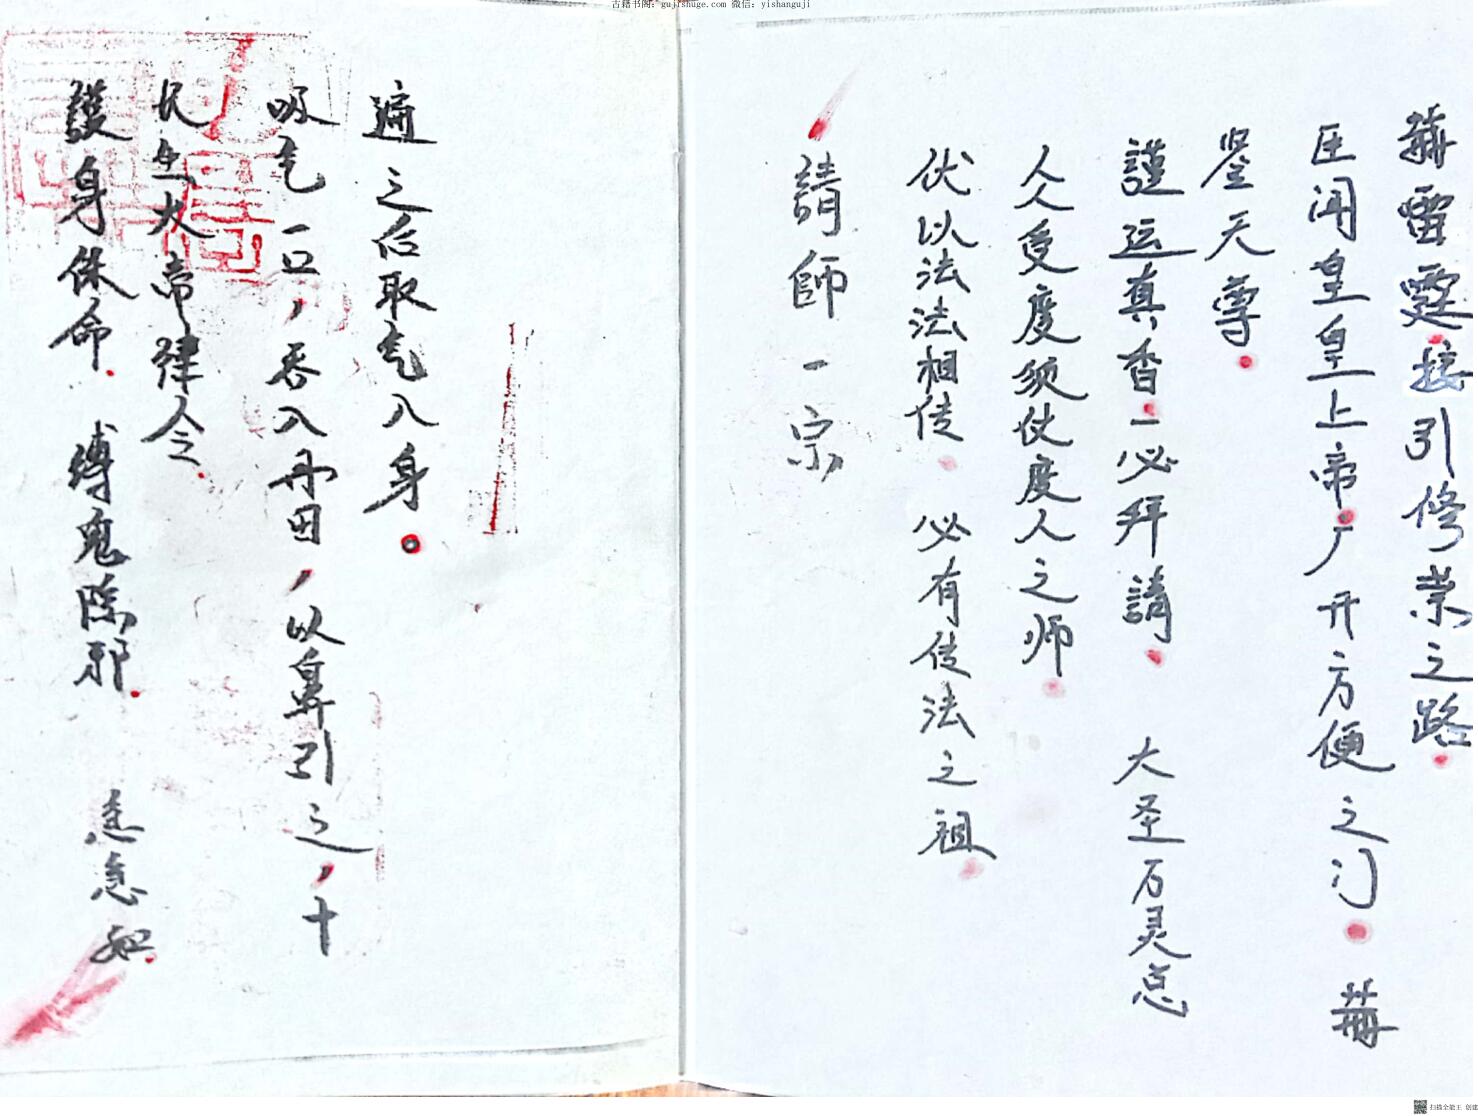 古籍书阁: gujishuge.com 微信: yishanguji
護身休命 縛鬼除邪 急急如
长生大帝律令
吸气一口，吞入丹田，以鼻引之，十
遍之后取气入身。
請師一宗
伏以法法相传 必有传法之祖
人人受度须仗度人之师
謹运真香一必拜請 大圣万灵总
鉴天尊
臣闻皇皇上帝广开方便之门
雷霆接引修之路
扫描全能王 创建